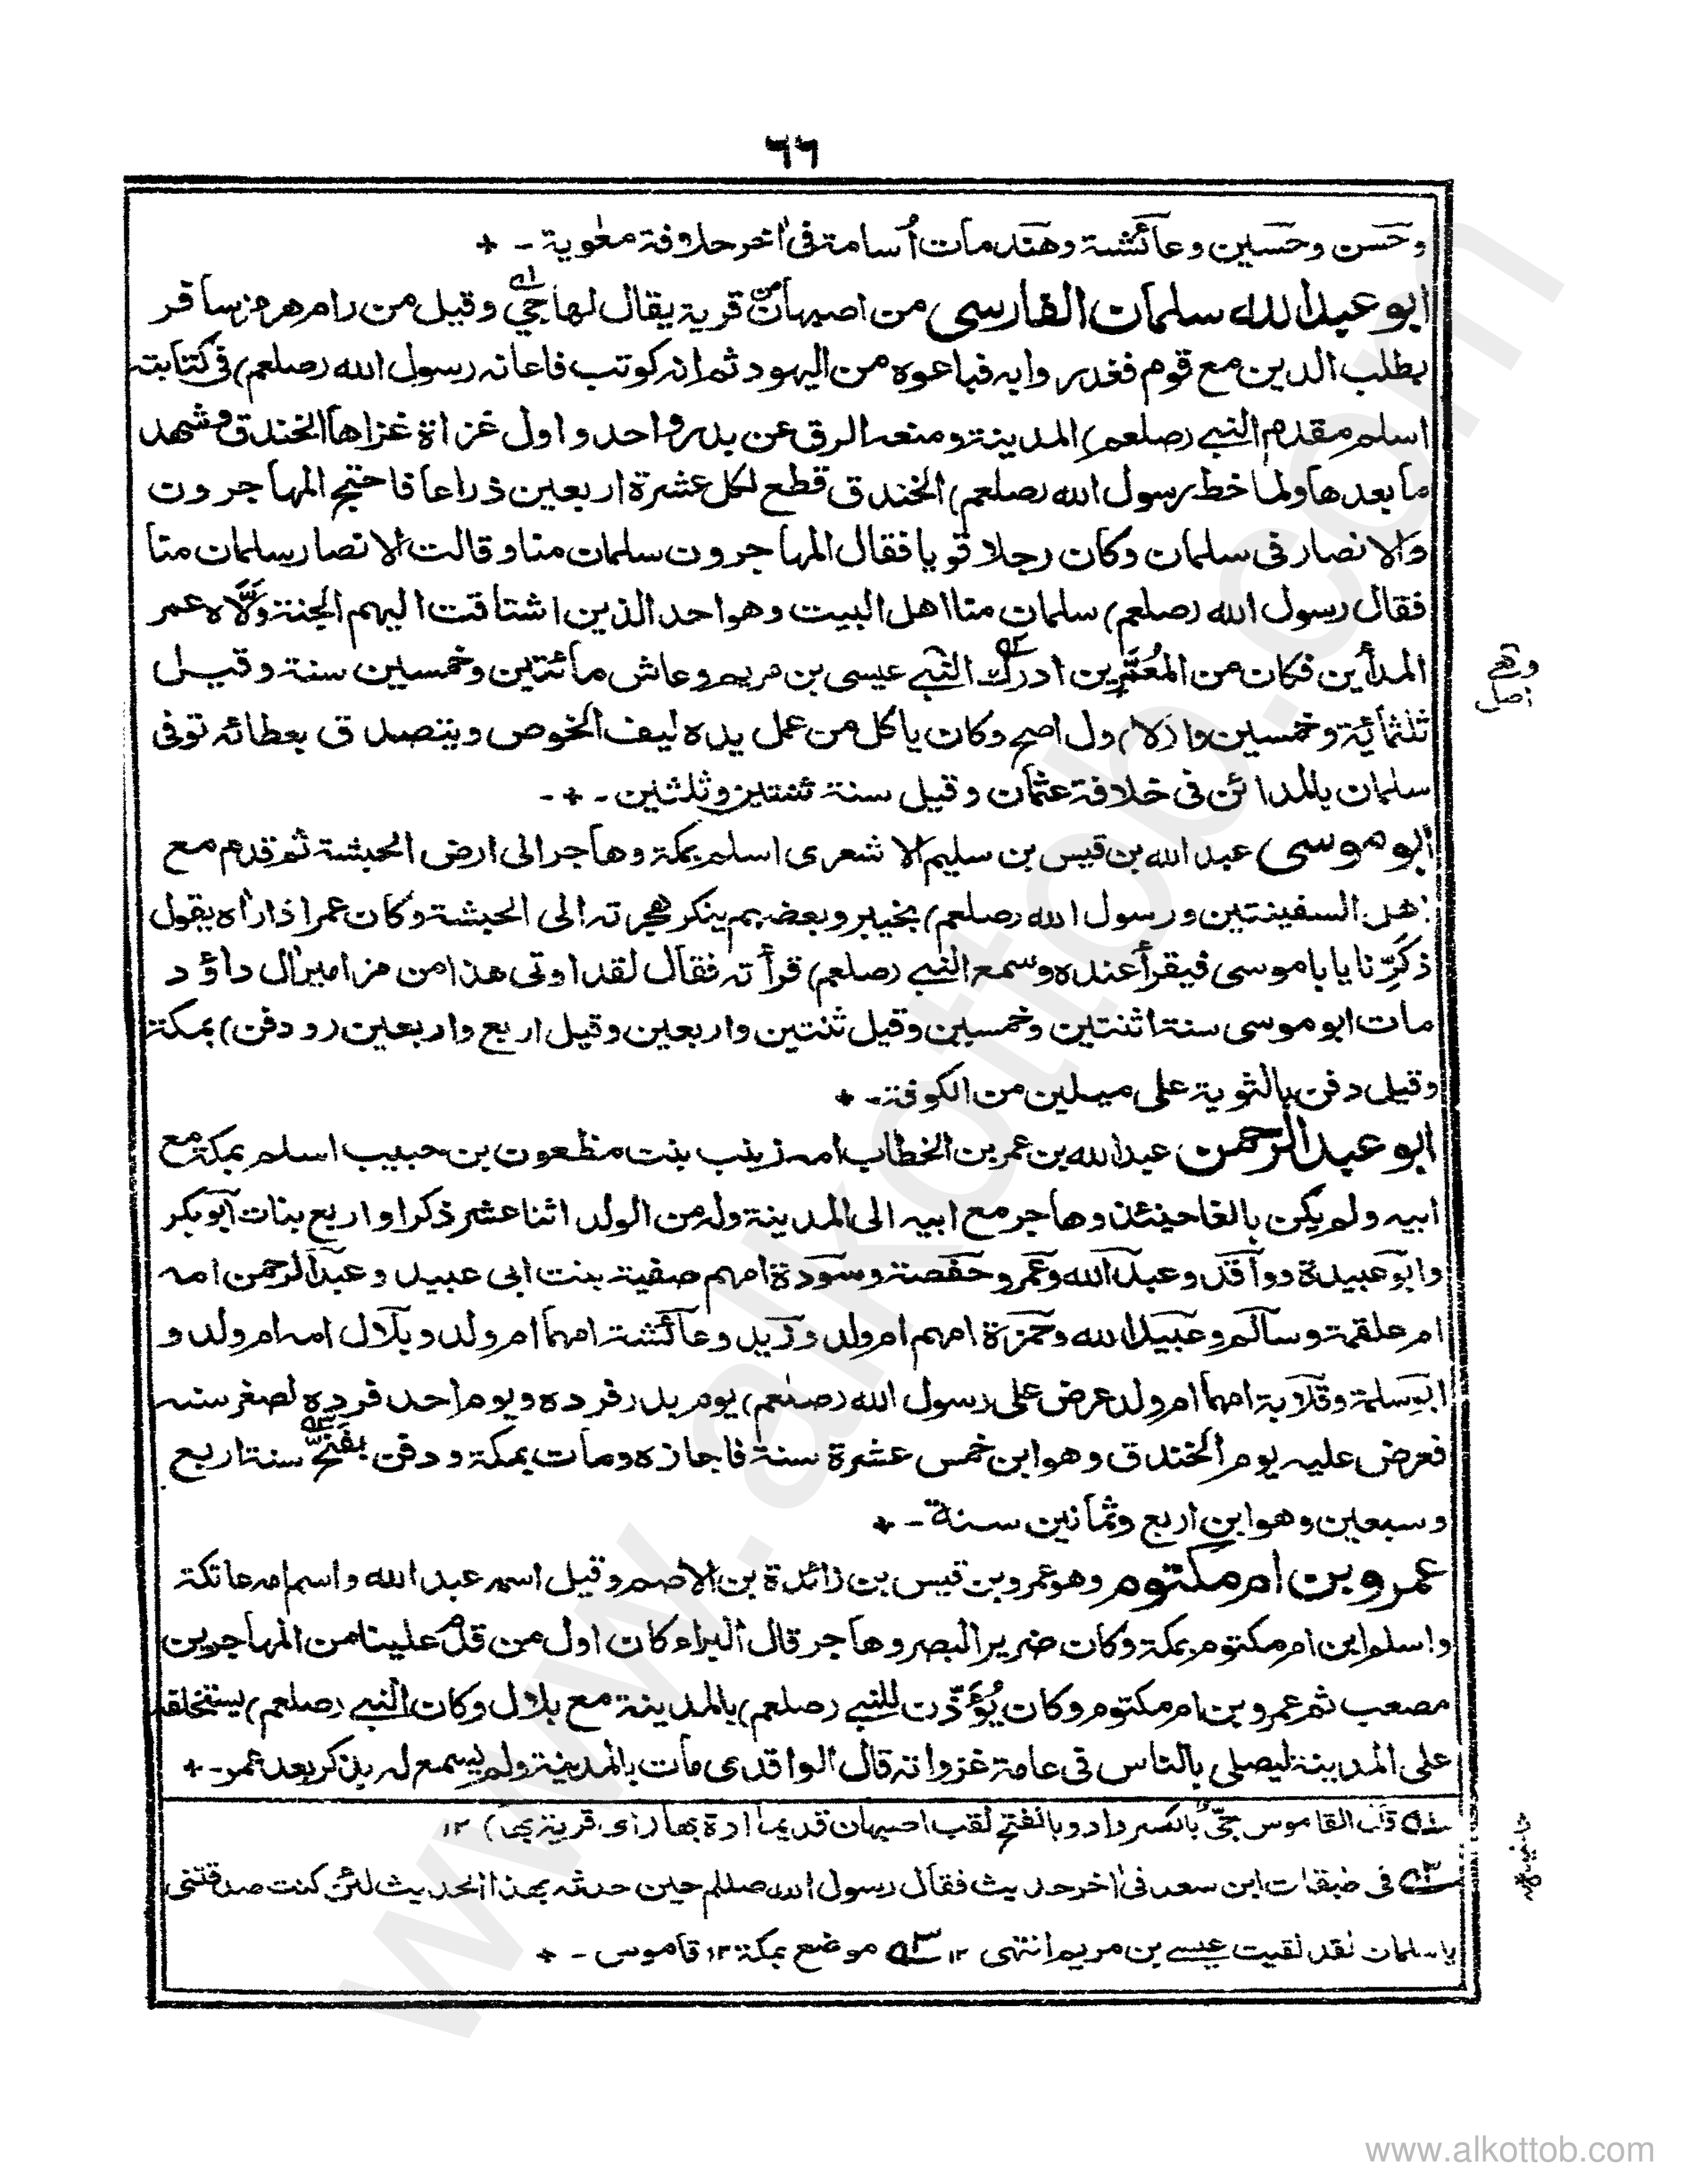 ٦٦
وحسن وحسين وعائشة وهند مات أسامة فى اخر خلافة معٰوية - +
ابو عبد الله سلمان الفارسى من اصبهان من قرية يقال لها جي وقيل من رام هرمز سافر
يطلب الدين مع قوم فغدروا به فباعوه من اليهود ثم انه كوتب فاعانه رسول الله (صلعم) فى كتابته
اسلم مقدم النبي (صلعم) المدينة ومنعه الرق عن بدر واحد واول غزاة غزاها الخندق وشهد
ما بعدها ولما خط رسول الله (صلعم) الخندق قطع لكل عشرة اربعين ذراعا فاحتج المهاجرون
والانصار فى سلمان وكان رجلا قويا فقال المهاجرون سلمان منا وقالت الانصار سلمان منا
فقال رسول الله (صلعم) سلمان منا اهل البيت وهو احد الذين اشتاقت اليهم الجنة وَلَّاه عمر
المدأين فكان من المُعَمَّرين ادرك النبي عيسى بن مريم وعاش مائتين وخمسين سنة وقيل
ثلثمائة وخمسين و(الا)ول اصح وكان ياكل من عمل يده ليف الخوص ويتصدق بعطائه توفى
سلمان بالمدائن فى خلافة عثمان وقيل سنة ثنتين وثلثين - + -
ابو موسى عبد الله بن قيس بن سليم الاشعرى اسلم بمكة وهاجر الى ارض الحبشة ثم قدم مع
اهل السفينتين ورسول الله (صلعم) بخيبر وبعضهم ينكر هجرته الى الحبشة وكان عمر اذا رأه يقول
ذكِّرنا يا با موسى فيقرأ عنده وسمع النبي (صلعم) قرأته فقال لقد اوتى هذا من مزامير ال داؤد
مات ابو موسى سنة اثنتين وخمسين وقيل ثنتين واربعين وقيل اربع واربعين (ودفن) بمكة
وقيل دفن بالثوية على ميلين من الكوفة - +
ابو عبد الرحمن عبد الله بن عمر بن الخطاب امه زينب بنت مظعون بن حبيب اسلم بمكة مع
ابيه ولم يكن بالغا حينئذ وهاجر مع ابيه الى المدينة وله من الولد اثنا عشر ذكرا واربع بنات ابو بكر
وابو عبيدة وواقد وعبد الله وعمر وحفصة وسودة امهم صفية بنت ابى عبيد وعبد الرحمن امه
ام علقمة وسالم وعبيد الله وحمزة امهم ام ولد وزيد وعائشة امهما ام ولد وبلال امه ام ولد و
ابو سلمة وقلابة امهما ام ولد عرض على رسول الله (صلعم) يوم بدر فرده ويوم احد فرده لصغر سنه
فعرض عليه يوم الخندق وهو ابن خمس عشرة سنة فاجازه ومات بمكة ودفن بفَخّ سنة اربع
وسبعين وهو ابن اربع وثمانين سنة - +
عمرو بن ام مكتوم وهو عمرو بن قيس بن زائدة بن الاصم وقيل اسمه عبد الله واسم امه عاتكة
واسلم ابن ام مكتوم بمكة وكان ضرير البصر وهاجر قال البراء كان اول من قدم علينا من المهاجرين
مصعب ثم عمرو بن ام مكتوم وكان يُؤَذّن للنبي (صلعم) بالمدينة مع بلال وكان النبي (صلعم) يستخلفه
على المدينة ليصلى بالناس فى عامة غزواته قال الواقدى مات بالمدينة ولم يسمع له بذكر بعد عمر - +
قال القاموس جيّ بالكسر واد وبالفتح لقب اصبهان قديما او قرية بها (اى قرية جي) ١٢
فى طبقات ابن سعد فى اخر حديث فقال رسول الله صللم حين حدثه بهذا الحديث لئن كنت صدقتنى
يا سلمان لقد لقيت عيسے بن مريم انتهى ١٢ موضع بمكة ١٢ قاموس - +
www.alkottob.com
www.alkottob.com